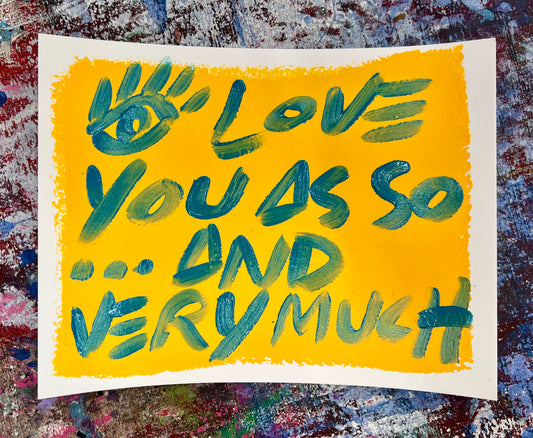 LOVE
YOU AS SO
... AND
VERY MUCH